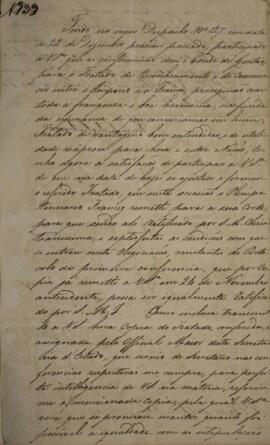 N.º 39
Tendo no meu Despacho Nº 37 em data
de 24 de Dezembro proximo passado, participado
a VSª que as conferencias com o Conde de Gestas,
para o Tratado de Reconhecimento e de Commercio
entre o Imperio e a França, proseguiaõ com
toda a franqueza e boa harmonia,
esperança de que
Tratado de vantagens bem entendidas, e de utili-
dade reciproca para huma e outra Naçaõ,
tenho agora a satisfaçaõ de participar a VSª
de que na data de hoje se ajustou e firmou
o referido Tratado, que nesta occasiaõ o Pleni-
potenciario Francez remette para a sua Corte
para que sendo ali Ratificado por S. M. Chris-
tianissima, e satisfeitas as condições com que
se entrou nesta Negociaçaõ, constantes do Proto-
colo da primeira conferencia, que por co-
pia já remetti a VSª em 24 de Novembro
antecedente, possa ser igualmente Ratifica-
do por S. M. I. Com inclusa transmit-
to a VSª huma Copia do Tratado, conferida e
assignada pelo Official Maior desta Secreta-
ria d'Estado, que servio de Secretario nas con-
ferencias respectivas
intelligencia de VSª na materia, referir-
me á mencionada copia, pela qual VSª
verá que se procurou manter quanto foi
possivel a igualdade com as estipulações